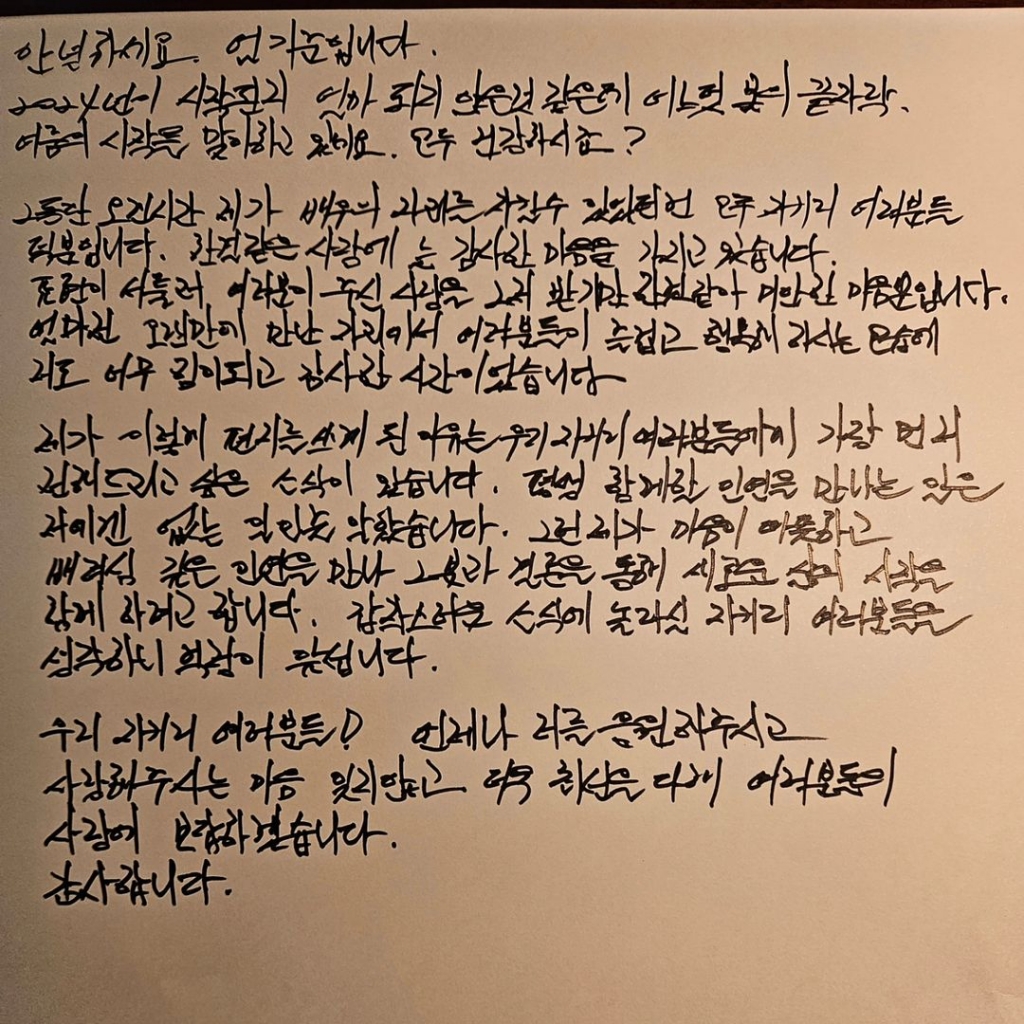 안녕하세요. 엄기준입니다.
2024년이 시작된지 얼마 되지 않은것 같은데 어느덧 봄의 끝자락.
여름의 시작을 맞이하고 있네요. 모두 건강하시죠?
그동안 오랜시간 제가 배우의 자리를 지킬수 있었던건 모두 자기리 여러분들
덕분입니다. 한결같은 사랑에 늘 감사한 마음을 가지고 있습니다.
표현이 서툴러 여러분이 주신 사랑을 그저 받기만 한것같아 미안한 마음뿐입니다.
얼마전 오랜만에 만난 자리에서 여러분들이 즐겁고 행복해 하시는 모습에
저도 너무 힘이되고 감사한 시간이었습니다
제가 이렇게 편지를 쓰게 된 이유는 우리 자기리 여러분들에게 가장 먼저
전해드리고 싶은 소식이 있습니다. 평생 함께할 인연을 만나는 일은
저에겐 없는 일인듯 싶었습니다. 그런 제가 마음이 따뜻하고
배려심 깊은 인연을 만나 그녀와 결혼을 통해 새로운 삶의 시작을
함께 하려고 합니다. 갑작스러운 소식에 놀라실 자기리 여러분들을
생각하니 걱정이 앞섭니다.
우리 자기리 여러분들! 언제나 저를 응원해주시고
사랑해주시는 마음 잊지않고 더욱 최선을 다해 여러분들의
사랑에 보답하겠습니다.
감사합니다.